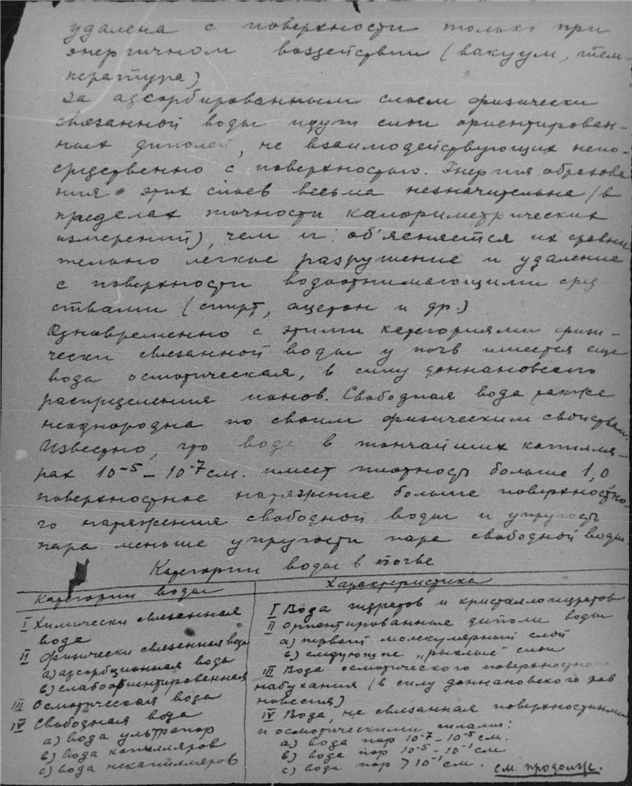 удалена с поверхности только при
энергичном воздействии (вакуум, тем-
пература)
За адсорбированным слоем физически
связанной воды идут слои ориентирован-
ных диполей, не взаимодействующих непо-
средственно с поверхностью. Энергия образова
ния этих слоев весьма незначительна (в
пределах точности калориметрических
измерений), чем и об'ясняется их сравни
тельно легкое разрушение и удаление
с поверхности водоотнимающими сред
ствами (спирт, ацетон и др.)
Одновременно с этими категориями физи-
чески связанной воды у почв имеется еще
вода осмотическая, в силу доннановского
распределения ионов. Свободная вода также
неоднородна по своим физическим свойствам.
Известно, что вода в тончайших капилля-
рах 10-5 – 10-7 см. имеет плотность больше 1,0
поверхностное натяжение больше поверхностно-
го натяжения свободной воды и упругость
пара меньше упругости пара свободной воды.
Категории воды в почве
Категории воды
I Химически связанная
вода
II Физически связанная вода
а) адсорбционная вода
в) слабоориентированная
III Осмотическая вода
IV Свободная вода
а) вода ультрапор
в) вода капилляров
с) вода некапилляров
Характеристика
I Вода гидратов и кристаллогидратов
II Ориентированные диполи воды
а) первый молекулярный слой
в) следующие „рыхлые" слои
III Вода осмотического поверхностного
набухания (в силу доннановского рав
новесия)
IV Вода, не связанная поверхностными
и осмотическими силами:
а) вода пор 10-7 – 10-5 см.
в) вода пор 10-5 – 10-1 см
с) вода пор > 10-1 см.
см. продолж.